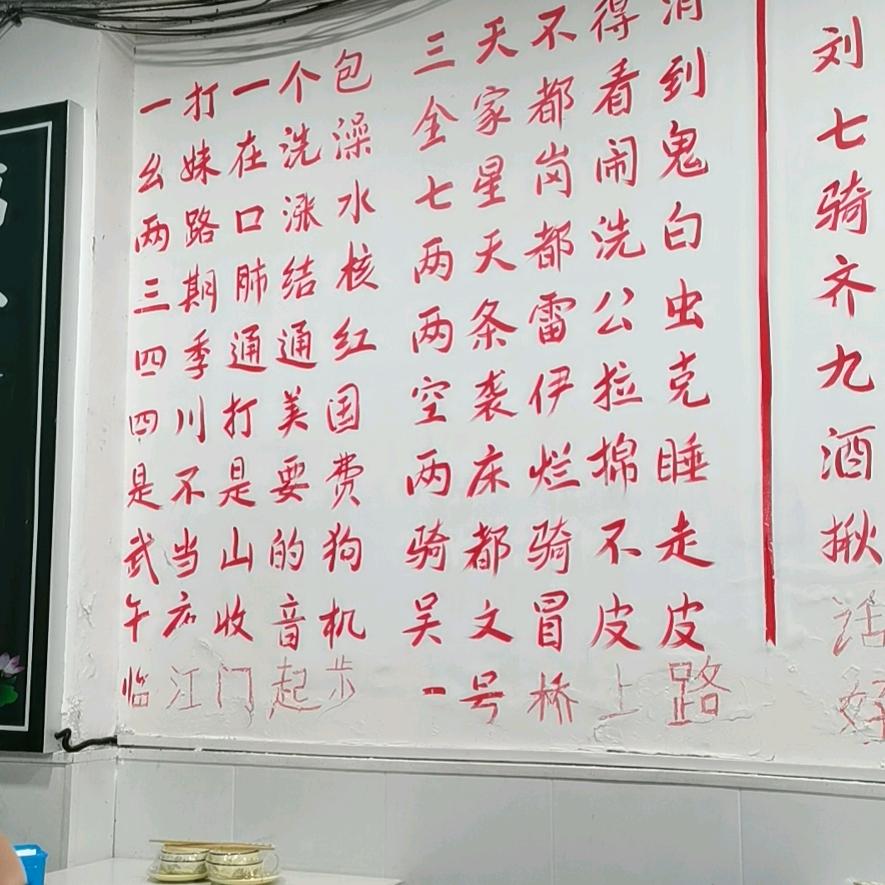 一打一个包
幺妹在洗澡
两路口涨水
三期肺结核
四季通通红
四川打美国
是不是要费
武当山的狗
午收音机
临江门起步
三天不得消
全家都看到
七星岗闹鬼
两天都洗白
两条雷公虫
空袭伊拉克
两床烂棉睡
骑都骑不走
吴文冒皮皮
一号桥上路
刘
七
骑
齐
九
酒
揪
活
好